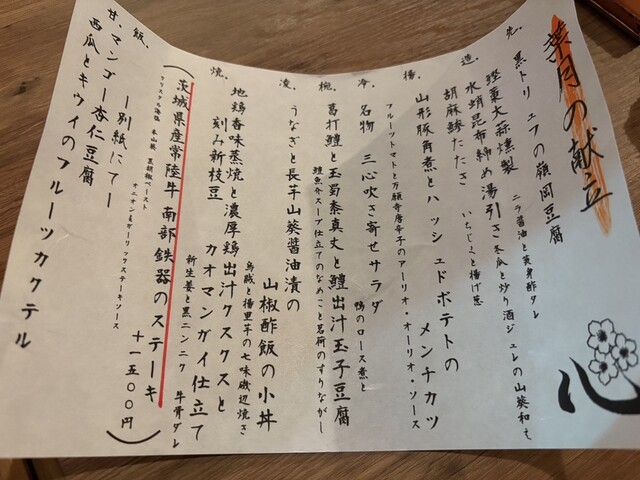 葉月の献立
先、黒トリュフの嶺岡豆腐
ニラ醤油と英身酢ダレ
鰹栗大蒜燻製
造、水蛸昆布締め湯引き
冬瓜と炒り酒ジュレの山葵和え
胡麻鯵たたき
いちじくと揚げ葱
揚、山形豚角煮とハッシュドポテトの
メンチカツ
フルーツトマトと万願寺唐辛子のアーリオ・オーリオ・ソース
冷、名物 三心吹き寄せサラダ
鴨のロース煮と
椀、葛打鱧と玉蜀黍真丈と鱧出汁玉子豆腐
鱧魚介スープ仕立てのなめこと茗荷のすりながし
凌、うなぎと長芋山葵醤油漬の
山椒酢飯の小丼
烏賊と揚里芋の七味磯辺焼き
焼、地鶏香味蒸焼と濃厚鶏出汁クスクスと
刻み新枝豆
カオマンガイ仕立て
新生姜と黒ニンニク 牛骨ダレ
(茨城県産常陸牛 南部鉄器のステーキ
十一五〇〇円)
クリスタル海塩 本山葵 黒胡椒ペースト
オニオン&ガーリックステーキソース
飯、ー別紙にてー
甘、マンゴー杏仁豆腐
西瓜とキウイのフルーツカクテル
心